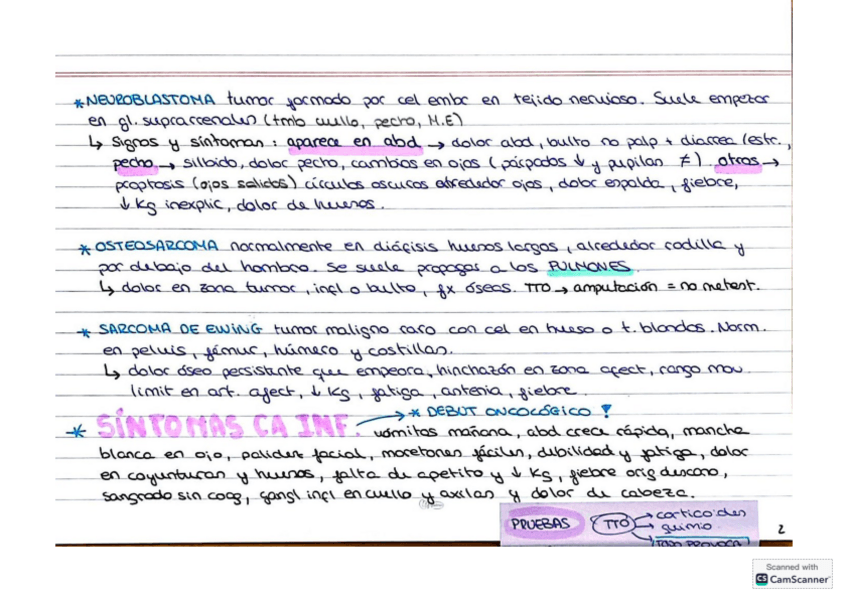 *NEUROBLASTOMA tumor formado por cel embr en tejido nervioso. Suele empezar
en gl. suprarrenales (tmb cuello, pecho, M.E)
↳ Signos y síntomas: aparece en abd → dolor abd, bulto no palp + diarrea (estr.,
pecho → silbido, dolor pecho, cambios en ojos (párpados ↓ y pupilas ≠) otros →
proptosis (ojos salidos) círculos oscuros alrededor ojos, dolor espalda, fiebre,
↓ Kg inexplic, dolor de huesos.
* OSTEOSARCOMA normalmente en diáfisis huesos largos, alrededor rodilla y
por debajo del hombro. Se suele propagar a los PULMONES.
↳ dolor en zona tumor, infl o bulto, fx óseas. TTO → amputación = no metast.
* SARCOMA DE EWING tumor maligno raro con cel en hueso o t. blandos. Norm.
en pelvis, fémur, húmero y costillas.
↳ dolor óseo persistente que empeora, hinchazón en zona afect, rango mov
limit en art. afect, ↓ Kg, fatiga, astenia, fiebre.
* SÍNTOMAS CA INF. → * DEBUT ONCOLÓGICO !
vómitos mañana, abd crece rápida, mancha
blanca en ojo, palidez facial, moretones fáciles, debilidad y fatiga, dolor
en coyunturas y huesos, falta de apetito y ↓ Kg, fiebre orig descono,
sangrado sin coag, gangl infl en cuello y axilas y dolor de cabeza.
PRUEBAS TTO → corticoides
→ quimio
→ TODO PROVOCA
2
Scanned with
CS CamScanner